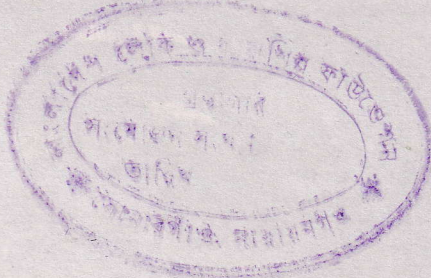 বাংলাদেশ লোক ও কারুশিল্প ফাউন্ডেশন
গ্রন্থাগার
তারিখ
সোনারগাঁও, নারায়নগঞ্জ